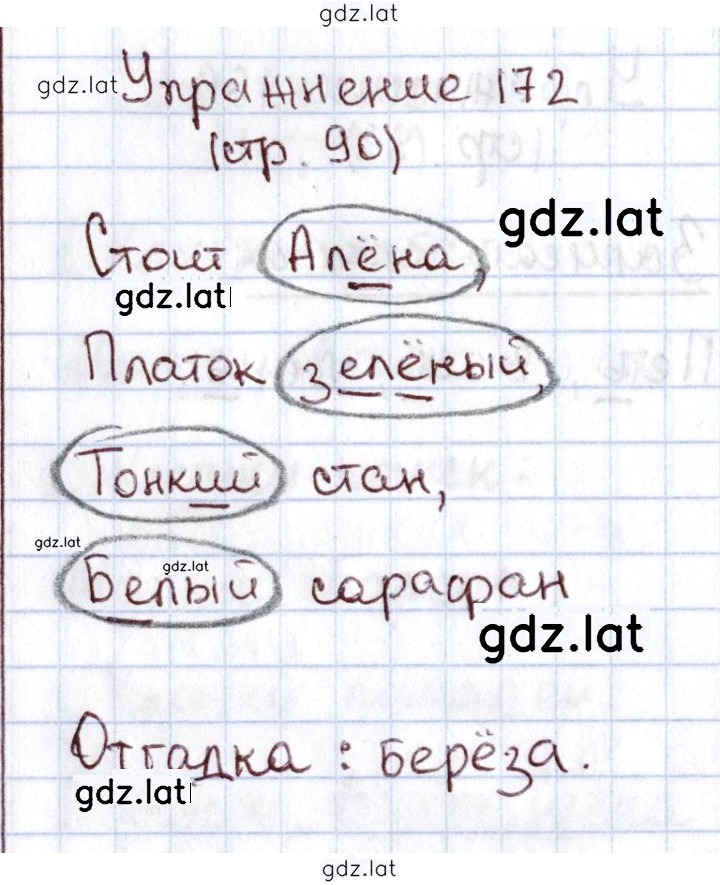 gdz.lat
gdz.lat
Упражнение 172
(стр. 90)
gdz.lat
Стоит Алёна,
gdz.lat
Платок зелёный,
Тонкий стан,
gdz.lat
gdz.lat
Белый сарафан
gdz.lat
Отгадка: берёза.
gdz.lat
gdz.lat